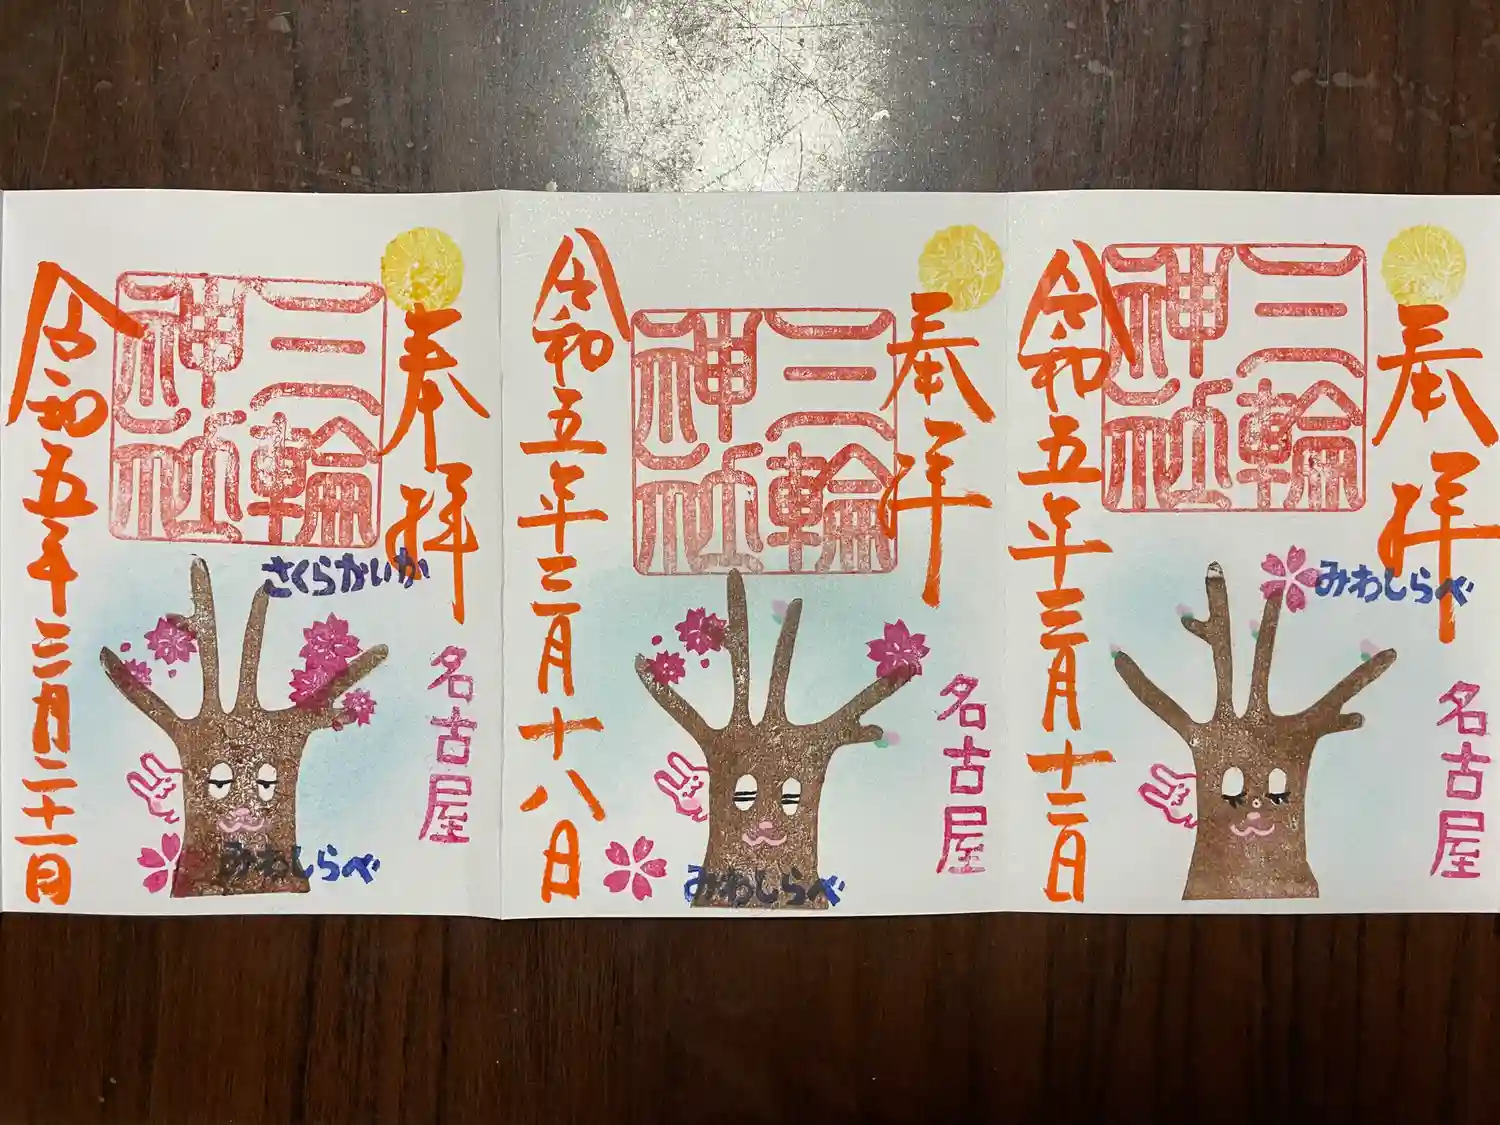 奉拝
三輪
神社
みわしらべ
名古屋
令和五年三月十二日
奉拝
三輪
神社
みわしらべ
名古屋
令和五年三月十八日
奉拝
三輪
神社
さくらかいか
みわしらべ
名古屋
令和五年三月二十一日